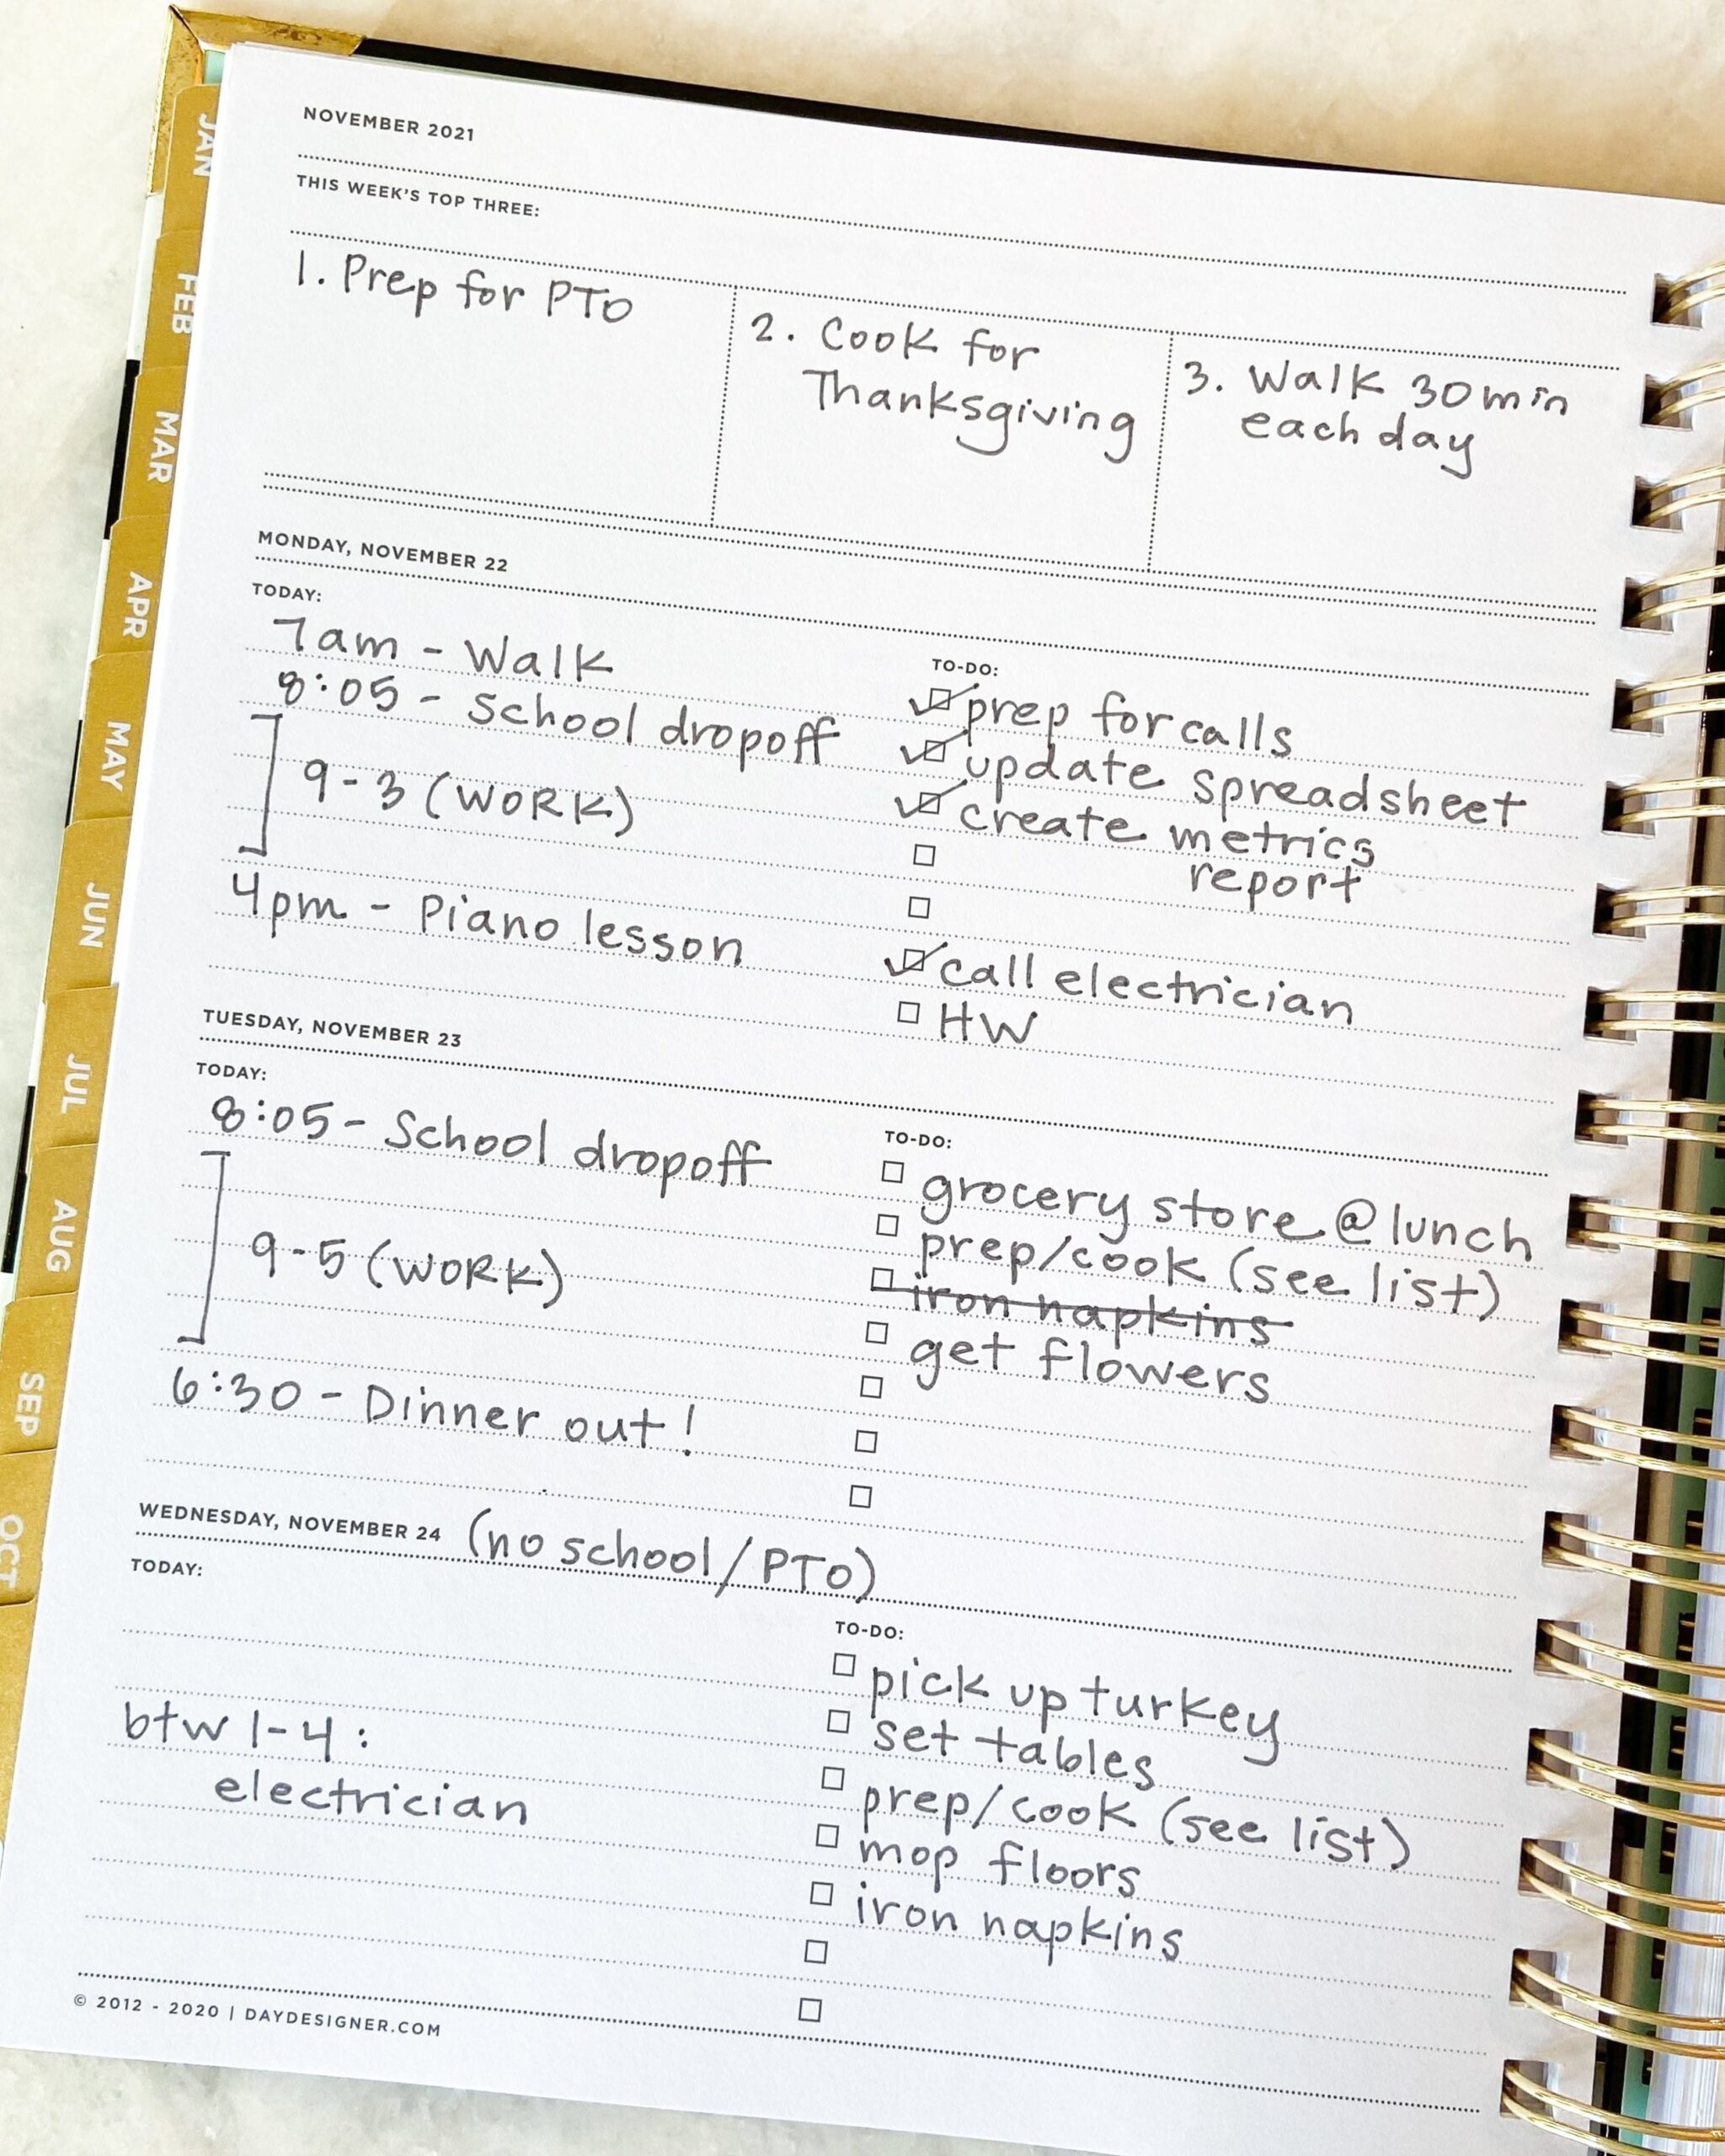 JAN
FEB
MAR
APR
MAY
JUN
JUL
AUG
SEP
OCT
NOVEMBER 2021
THIS WEEK'S TOP THREE:
1. Prep for PTO
2. Cook for
Thanksgiving
3. Walk 30 min
each day
MONDAY, NOVEMBER 22
TODAY:
7am - Walk
8:05 - School dropoff
9-3 (WORK)
4pm - Piano lesson
TO-DO:
prep for calls
update spreadsheet
create metrics
report
call electrician
HW
TUESDAY, NOVEMBER 23
TODAY:
8:05 - School dropoff
9-5 (WORK)
6:30 - Dinner out!
TO-DO:
grocery store @ lunch
prep/cook (see list)
iron napkins
get flowers
WEDNESDAY, NOVEMBER 24 (no school/PTO)
TODAY:
btw 1-4:
electrician
TO-DO:
pick up turkey
set tables
prep/cook (see list)
mop floors
iron napkins
© 2012 - 2020 | DAYDESIGNER.COM